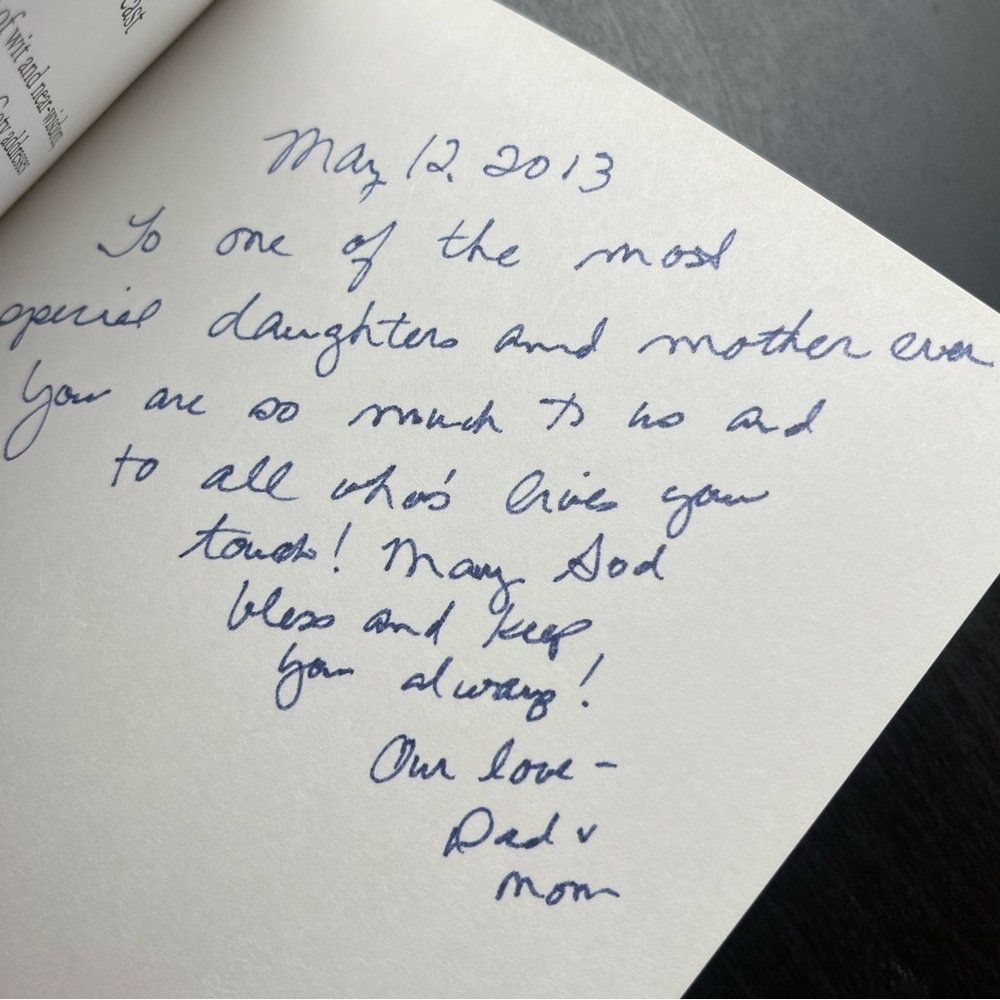 cast
of wit and near-wisdom
Getty addresses
May 12, 2013
To one of the most
special daughters and mother ever
You are so much to us and
to all who's lives you
touch! May God
bless and keep
you always!
Our love -
Dad &
Mom